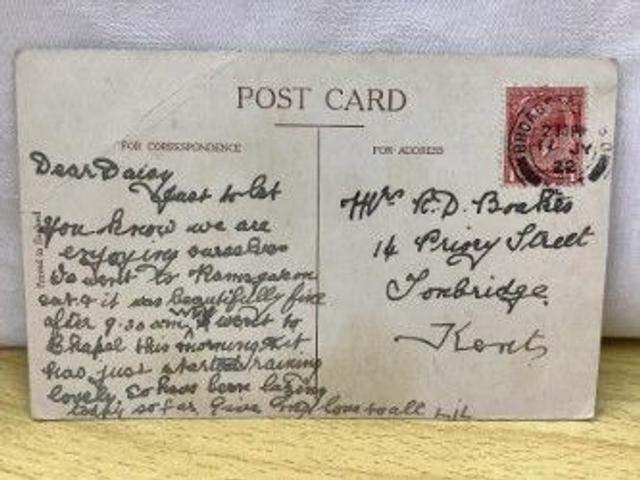 POST CARD
FOR CORRESPONDENCE
FOR ADDRESS
Dear Daisy
Just to let
you know we are
enjoying ourselves
went to Ramsgate on
sat & it was beautifully fine
after 9.30 am, went to
Chapel this morning & it
has just started raining
lovely. So have been lazing
today so far. Give my love to all
Mrs R.D. Boakes
14 Priory Street
Tonbridge
Kent
BROADSTAIRS
JY
22